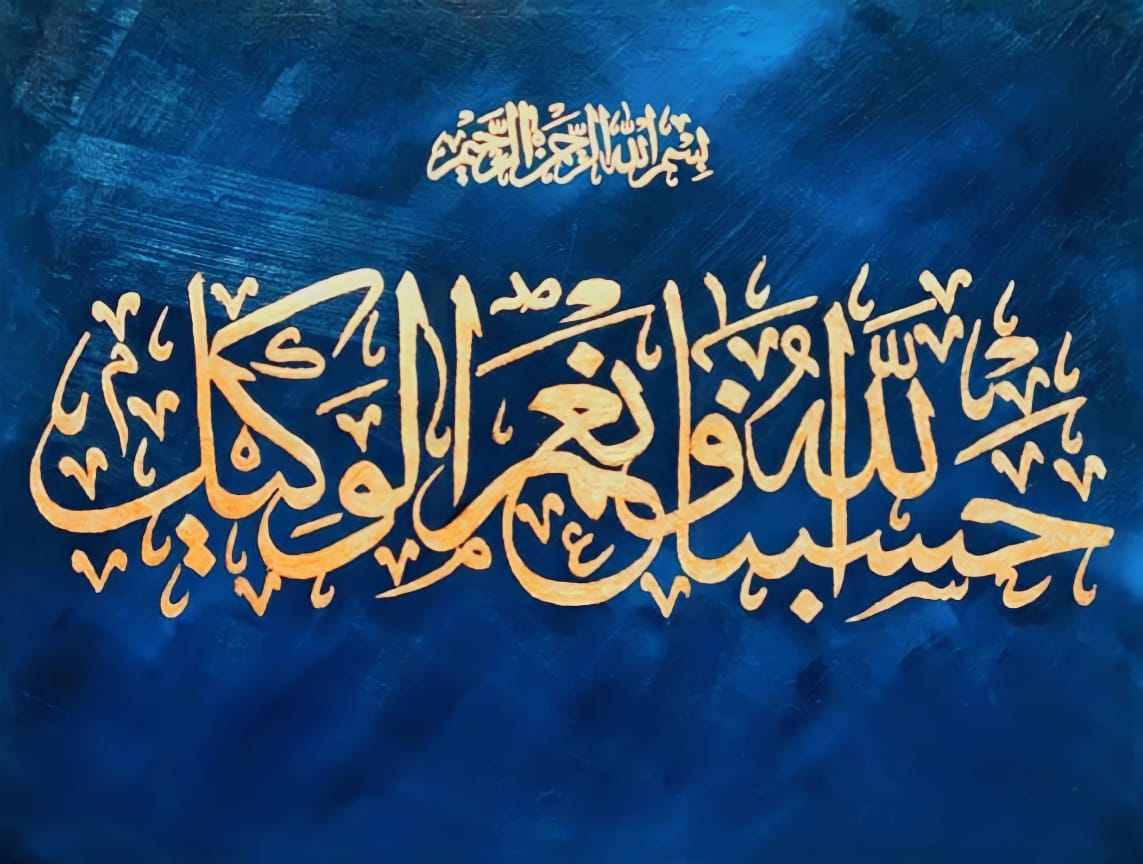 بسم الله الرحمن الرحيم
حسبنا الله ونعم الوكيل